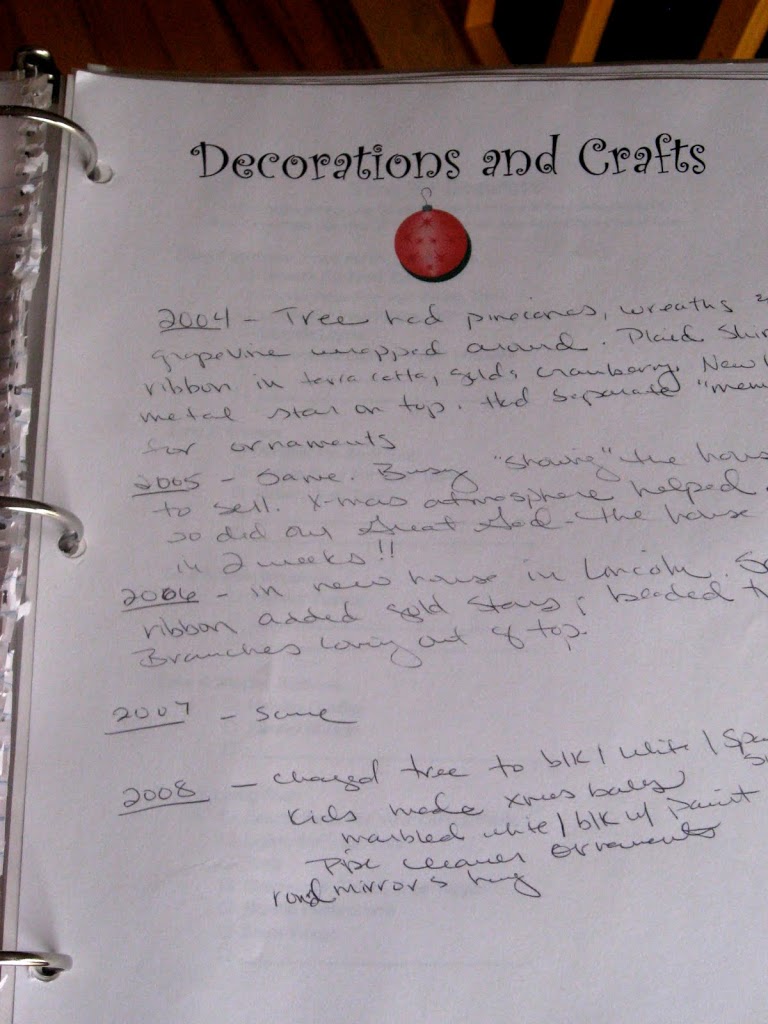 Decorations and Crafts
2004 - Tree had pinecones, wreaths &
grapevine wrapped around. Plaid
ribbon in terra cotta, gold, cranberry. New
metal star on top. Had separate "mem
for ornaments
2005 - Same. Busy "showing" the hous
to sell. X-mas atmosphere helped
so did our Great God - the house
in 2 weeks!!
2006 - in new house in Lincoln.
ribbon added gold stars; beaded
Branches coming out of top.
2007 - Same
2008 - changed tree to blk / white /
Kids made xmas balls
marbled white / blk w/ paint
Pipe cleaner ornaments
round mirrors hung